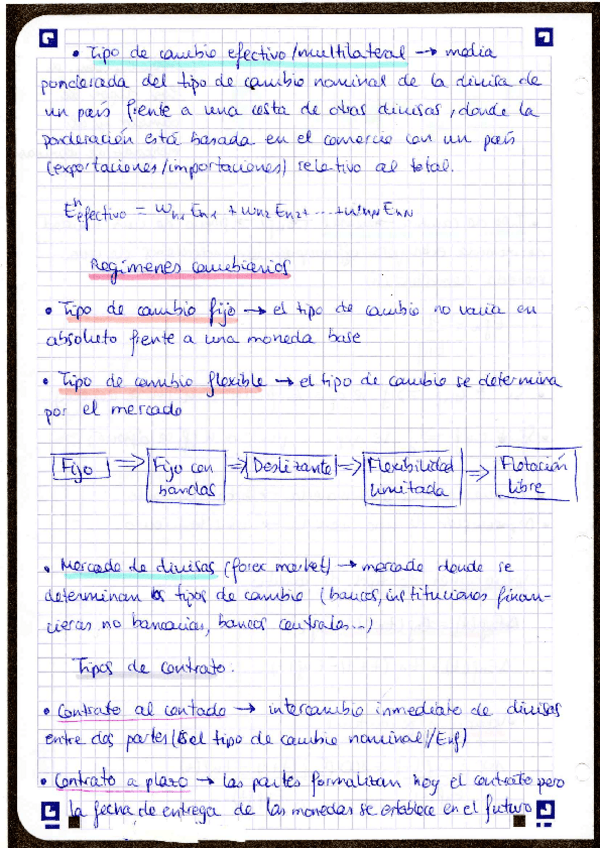 • Tipo de cambio efectivo/multilateral → media
ponderada del tipo de cambio nominal de la divisa de
un país frente a una cesta de otras divisas, donde la
ponderación está basada en el comercio con un país
(exportaciones/importaciones) relativo al total.
Eⁿefectivo = wn1 En1 + wn2 En2 + ... + wnN EnN
Regímenes cambiarios
• Tipo de cambio fijo → el tipo de cambio no varía en
absoluto frente a una moneda base
• Tipo de cambio flexible → el tipo de cambio se determina
por el mercado
Fijo ⇒ Fijo con bandas ⇒ Deslizante ⇒ Flexibilidad limitada ⇒ Flotación libre
• Mercado de divisas (forex market) → mercado donde se
determinan los tipos de cambio (bancos, instituciones finan-
cieras no bancarias, bancos centrales...)
Tipos de contrato:
• Contrato al contado → intercambio inmediato de divisas
entre dos partes (es el tipo de cambio nominal/
• Contrato a plazo → las partes formalizan hoy el contrato pero
la fecha de entrega de las monedas se establece en el futuro